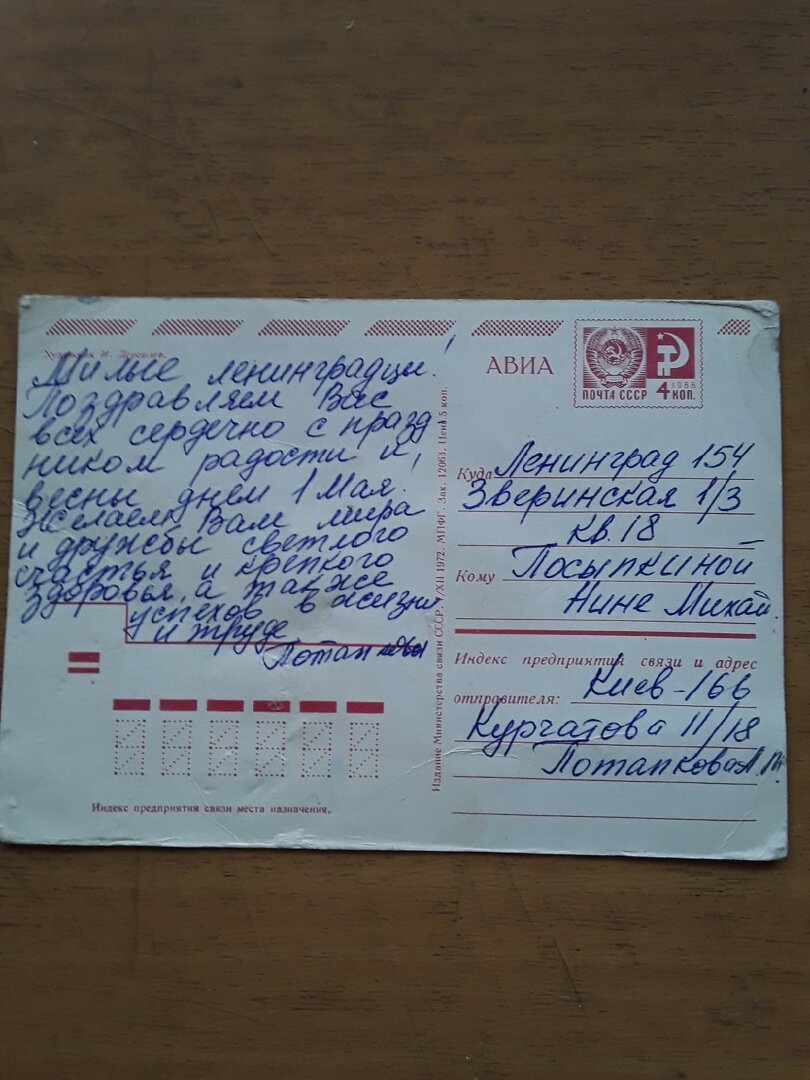 Художник И. Дергилев.
Милые ленинградцы!
Поздравляем Вас
всех сердечно с празд
ником радости и
весны днем 1 Мая!
Желаем Вам мира
и дружбы светлого
счастья и крепкого
здоровья, а также
успехов в жизни
и труде
Индекс предприятия связи места назначения.
Издание Министерства связи СССР. 7/XII 1972. МПФГ. Зак. 12063. Цена 5 коп.
АВИА
ПОЧТА СССР
1966
4 КОП.
Куда Ленинград 154
Зверинская 1/3
кв. 18
Кому Посыпкиной
Нине Михай
Индекс предприятия связи и адрес
отправителя: Киев-166
Курчатова 11/18
Потапкова